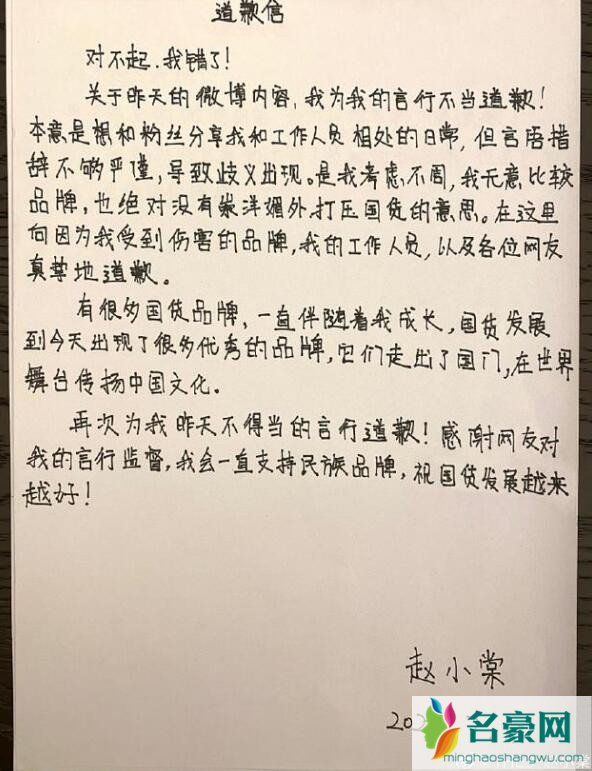 道歉信
对不起.我错了!
关于昨天的微博内容,我为我的言行不当道歉!
本意是想和粉丝分享我和工作人员相处的日常,但言语措
辞不够严谨,导致歧义出现。是我考虑不周,我无意比较
品牌,也绝对没有崇洋媚外打压国货的意思。在这里
向因为我受到伤害的品牌,我的工作人员,以及各位网友
真挚地道歉。
有很多国货品牌,一直伴随着我成长,国货发展
到今天出现了很多优秀的品牌,它们走出了国门,在世界
舞台传扬中国文化。
再次为我昨天不得当的言行道歉!感谢网友对
我的言行监督,我会一直支持民族品牌,祝国货发展越来
越好!
赵小棠
202
名豪网
minghaoshangwu.com